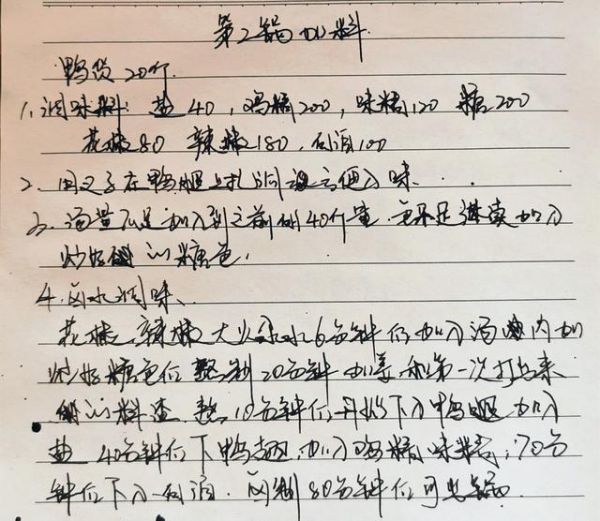 第2锅加料
鸭货20斤
1、调味料：盐40，鸡精200，味精120 糖200
花椒80 辣椒180，白酒100
2、用叉子在鸭腿上扎洞 方便入味、
3、汤量不足加入到之前的40斤量，色不足继续加入
炒好的糖色.
4、卤水调味、
花椒、辣椒大火 水6分钟后加入汤内加
炒好糖色后熬制20分钟 加姜和第一次打出来
的料渣 熬10分钟后开始下入鸭腿加入
盐 40分钟后下鸭翅，加入鸡精味精，70分
钟后下入白酒. 卤制80分钟后可出锅.